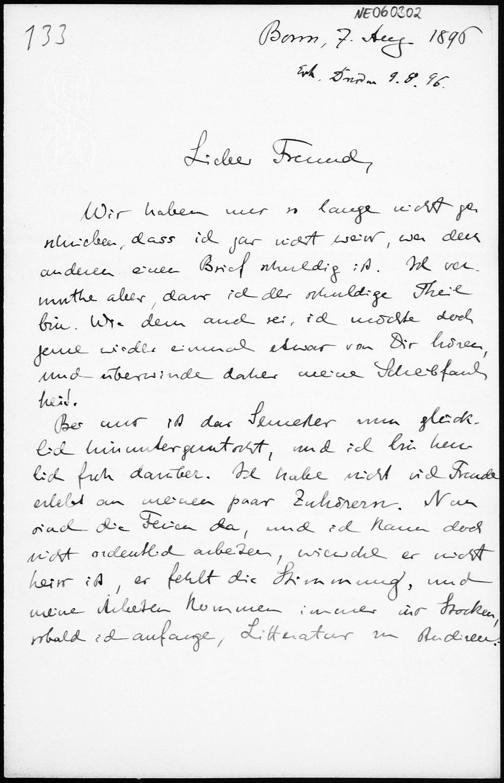 NE060302
133
Bonn, 7. Aug. 1896
Erh. Dresden 9.8.96.
Lieber Freund,
Wir haben uns so lange nicht ge
schrieben, dass ich gar nicht weiss, wer dem
anderen einen Brief schuldig ist. Ich ver
muthe aber, dass ich der schuldige Theil
bin. Wie dem auch sei, ich möchte doch
gerne wieder einmal etwas von Dir hören,
und überwinde daher meine Schreibfaul
heit.
Bei uns ist das Semester nun glück-
lich hinuntergerutscht, und ich bin herz
lich froh darüber. Ich habe nicht viel Freude
erlebt an meinen paar Zuhörern. Nun
sind die Ferien da, und ich kann doch
nicht ordentlich arbeiten, wiewohl es nicht
heiss ist, es fehlt die Stimmung, und
meine Arbeiten kommen immer ins Stocken,
sobald ich anfange, Litteratur zu studieren.